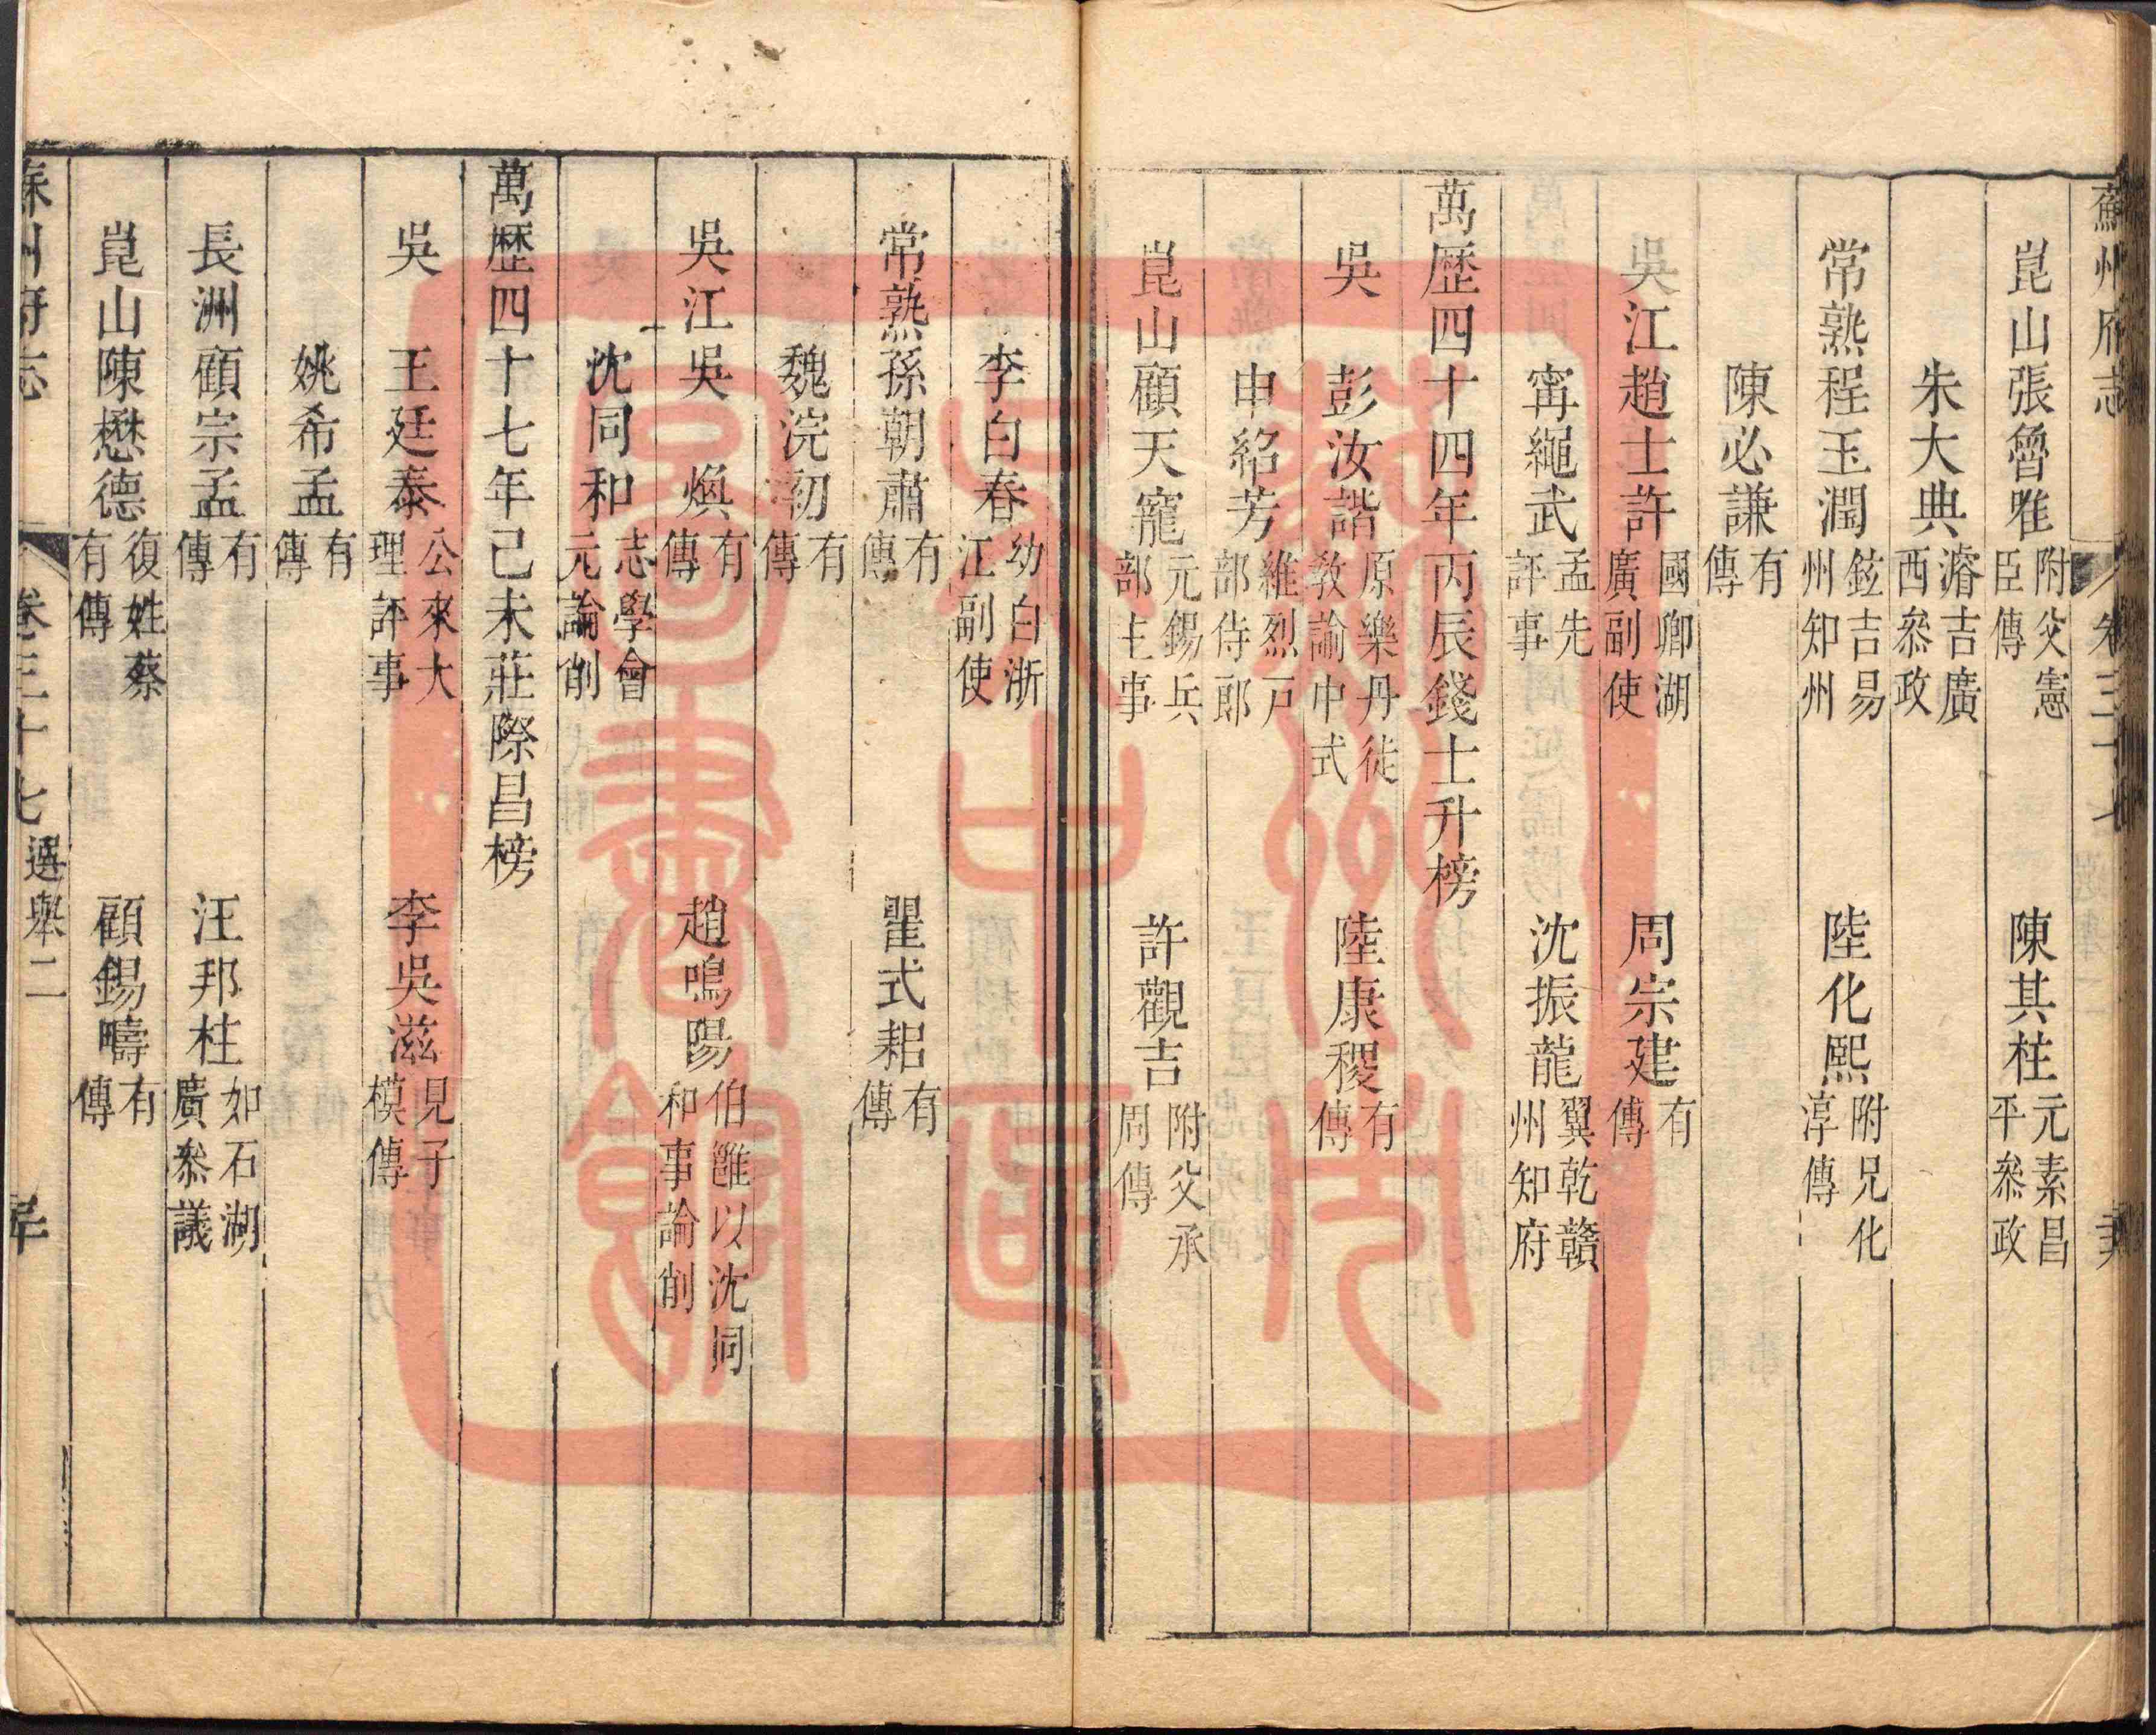 蘇州府志 卷三十七
崑山張魯唯附父憲臣傳 陳其柱元素昌平叅政
朱大典濬吉廣西叅政
常熟程玉潤鉉吉易州知州 陸化熙附兄化淳傳
陳必謙有傳
吳江趙士許國卿湖廣副使 周宗建有傳
甯繩武孟先評事 沈振龍翼乾贛州知府
萬歷四十四年丙辰錢士升榜
吳 彭汝諧原樂丹徒敎諭中式 陸康稷有傳
申紹芳維烈戶部侍郎
崑山顧天寵元錫兵部主事 許觀吉附父承周傳
李白春幼白浙江副使
常熟孫朝肅有傳 瞿式耜有傳
魏浣初有傳
吳江吳煥有傳 趙鳴陽伯雝以沈同和事論削
沈同和志學會元論削
萬歷四十七年己未莊際昌榜
吳 王廷泰公來大理評事 李吳滋見子模傳
姚希孟有傳
長洲顧宗孟有傳 汪邦柱如石湖廣叅議
崑山陳懋德復姓蔡有傳 顧錫疇有傳
蘇州府志 卷三十七 選舉二